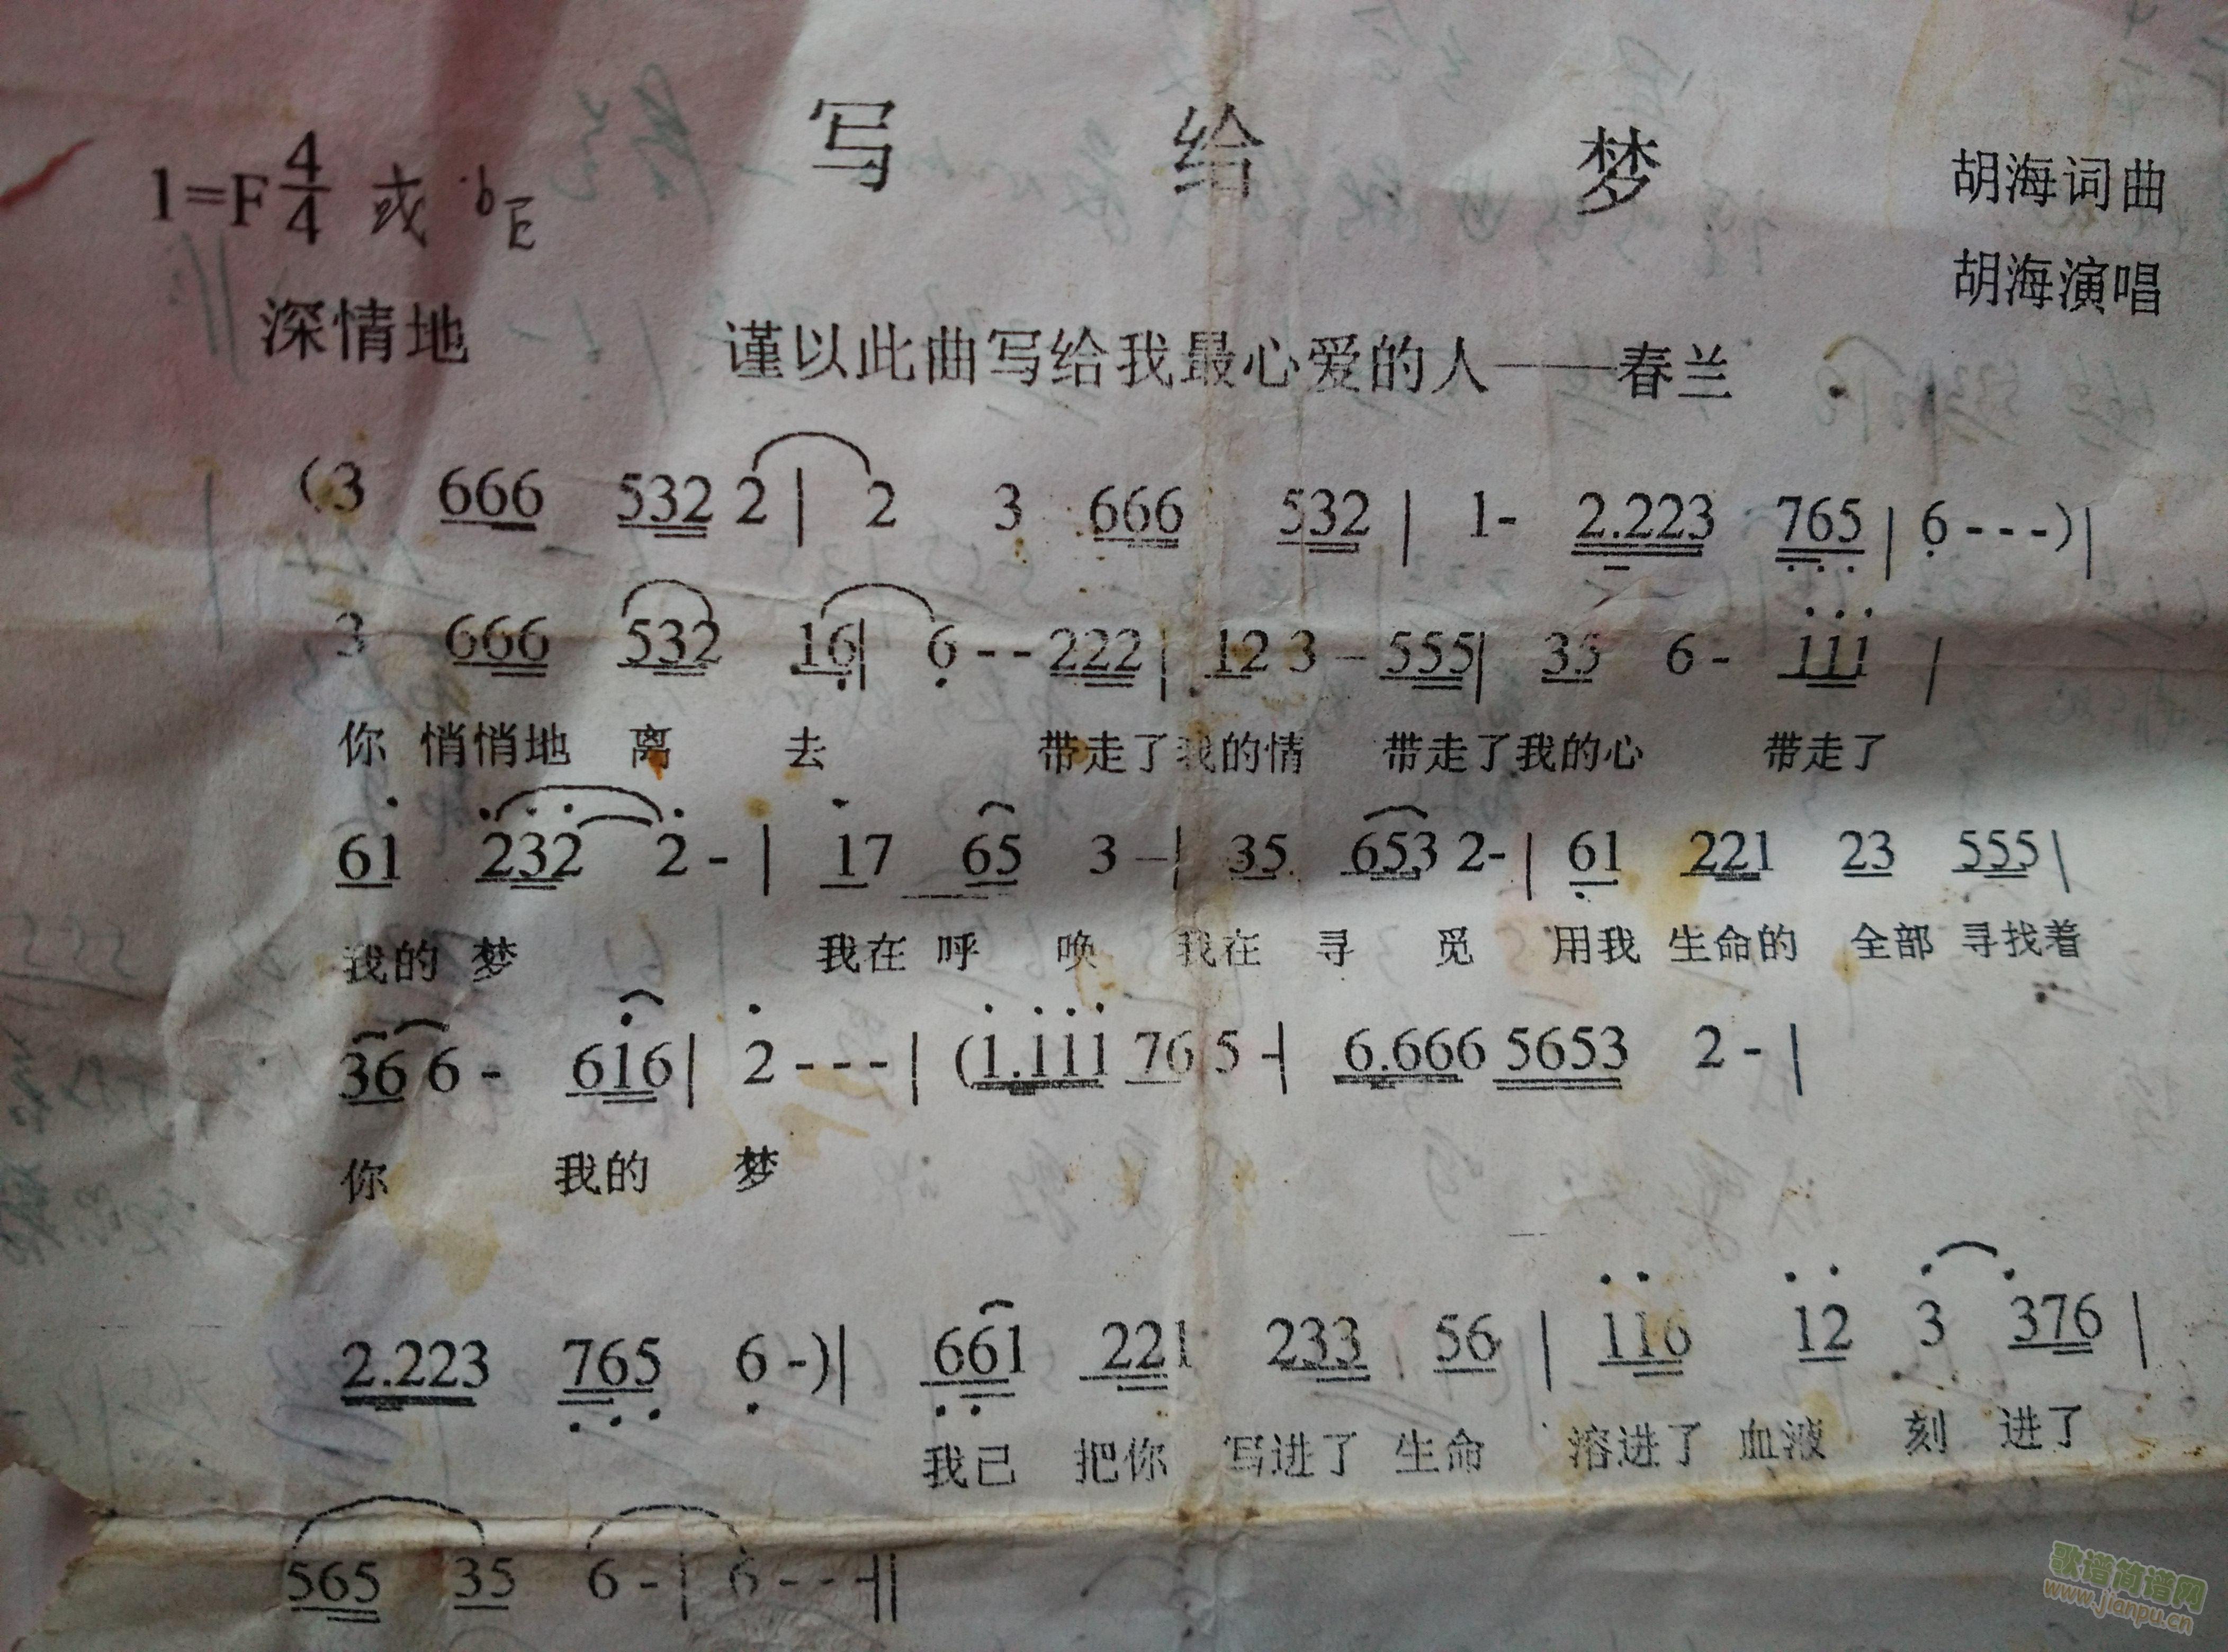 写 给 梦
1=F 4/4 或 ♭E
胡海词曲
胡海演唱
深情地 谨以此曲写给我最心爱的人——春兰
(3 666 532 2 | 2 3 666 532 | 1- 2.223 765 | 6---)|
3 666 532 16 | 6--222 | 12 3-555 | 35 6- 111 |
你 悄悄地 离 去 带走了我的情 带走了我的心 带走了
61 232 2- | 17 65 3-| 35 653 2- | 61 221 23 555 |
我的 梦 我在 呼 唤 我在 寻 觅 用我 生命的 全部 寻找着
36 6- 616 | 2--- | (1.111 76 5-| 6.666 5653 2- |
你 我的 梦
2.223 765 6-)| 661 221 233 56 | 116 12 3 376 |
我已 把你 写进了 生命 溶进了 血液 刻 进了
565 35 6- | 6---‖
歌谱简谱网
www.jianpu.cn